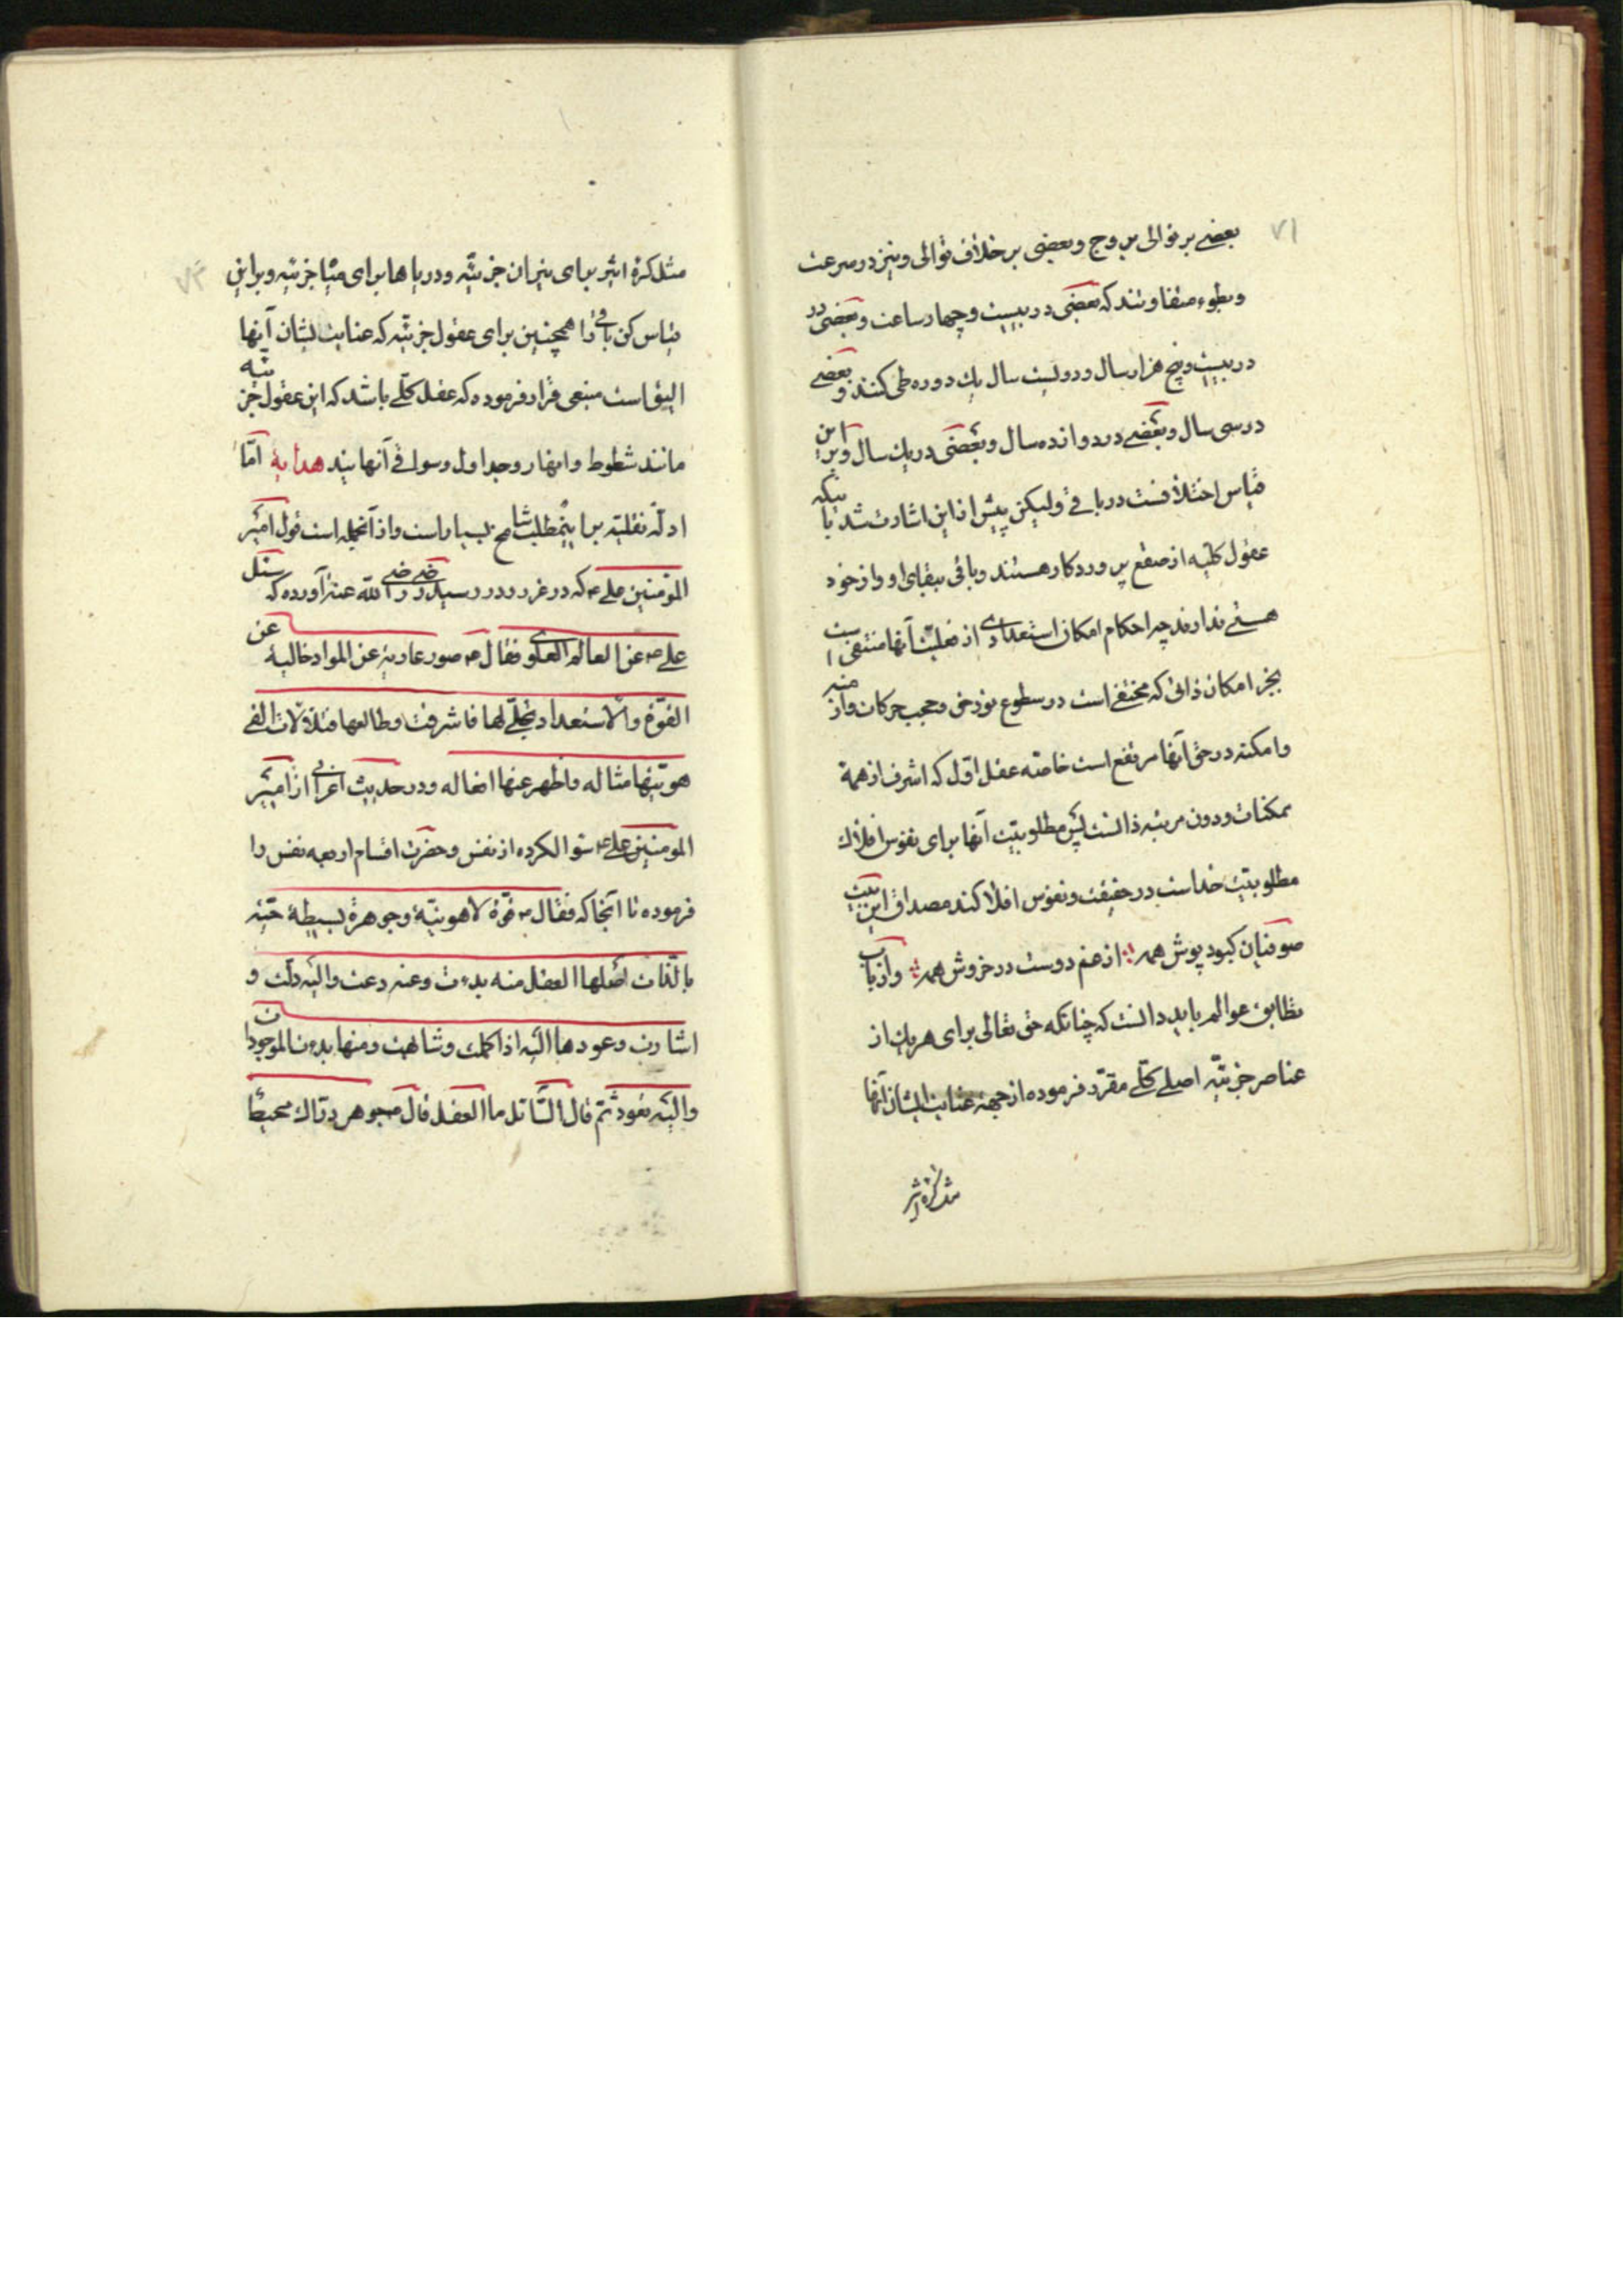 ۷۱
بعضے بر توالی بروج وبعضی بر خلاف توالی ونیز در سرعت
وبطوء متفاوتند که بعضی در بیست وچهار ساعت وبعضی در
در بیست وپنج هزار سال ودویست سال یك دوره طی کنند وبعضے
در سی سال وبعضے در دوازده سال وبعضی در یك سال وبر این
قیاس اختلافست در باقے ولیکن پیش از این اشارت شد باینکه
عقول کلیه از صقع پروردکار هستند وباقی ببقای او واز خود
هستے ندارند چه احکام امکان استعدادی از فعلیت آنها منتفی است
بجز امکان ذاتی که مختفے است در سطوع نور حق وحجب حرکات وازمنه
وامکنه در حق آنها مرتفع است خاصه عقل اوّل که اشرف از همهٔ
ممکنات ودون مرتبه ذاتست پس مطلوبیّت آنها برای نفوس افلاك
مطلوبیّت خداست در حقیقت ونفوس افلاکند مصداق این بیت
صوفیان کبود پوش همه ∴ از غم دوست در خروش همه ∴ واز باب
تطابق عوالم باید دانست که چنانکه حق تعالی برای هر یك از
عناصر جزئیّه اصلے کلّے مقرّر فرموده از جهة عنایت بشان آنها
مثل کرهٔ اثیر
مثل کرهٔ اثیر برای نیران جزئیّه ودریاها برای میاه جزئیّه وبر این
قیاس کن باقے را همچنین برای عقول جزئیّه که عنایت بشان آنها
الیق است منبعی قرار فرموده که عقل کلّے باشد که این عقول جزئیّه
مانند شطوط وانهار وجداول وسواقے آنهایند هدایة امّا
ادلّه نقلیّه بر اینمطلب شامخ بسیار است واز آنجمله است قول امیر
المؤمنین علے ع که در غرر ودرر سید مرتضے رضے الله عنه آورده که سئل
علے ع عن العالم العلوی فقال ع صور عاریة عن المواد خالیة عن
القوّة والاستعداد تجلّے لها فاشرقت وطالعها فتلألأت القے
هویّتها مثاله واظهر عنها افعاله ودر حدیث اعرابی از امیر
المومنین علے ع سئوال کرده از نفس وحضرت اقسام اربعه نفس را
فرموده تا آنجا که فقال ع قوّة لاهوتیّة وجوهرة بسیطة حیّة
بالذّات اصلها العقل منه بدءت وعنه دعت والیه دلّت و
اشارت وعودها الیه اذا کملت وشابهت ومنها بدءت الموجودات
والیه تعود ثم قال السّائل ما العقل قال ع جوهر درّاك محیط